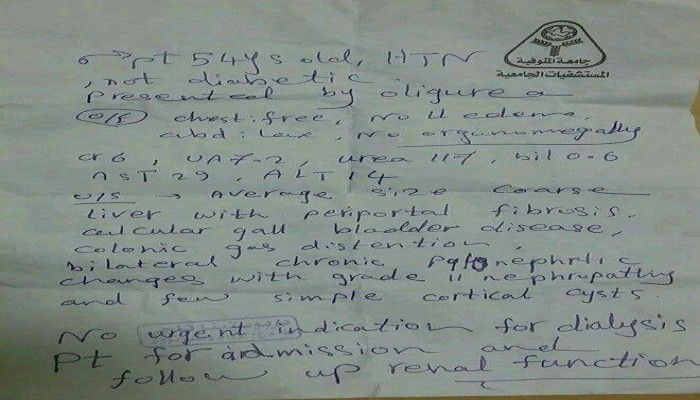 جامعة المنوفية
المستشفيات الجامعية
♂ pt 54ys old, HTN
, not diabetic
presented by oligurea
O/E chest: free, No LL edema,
abd: lax, No orgunomegally
cr 6, UA 7.2, urea 117, bil 0.6
AST 29, ALT 14
U/S → Average size coarse
liver with periportal fibrosis.
calcular gall bladder disease,
colonic gas distention,
bilateral chronic pylonephritic
changes with grade II nephropathy
and few simple cortical cysts.
No urgent indication for dialysis
Pt for admission and
follow up renal function